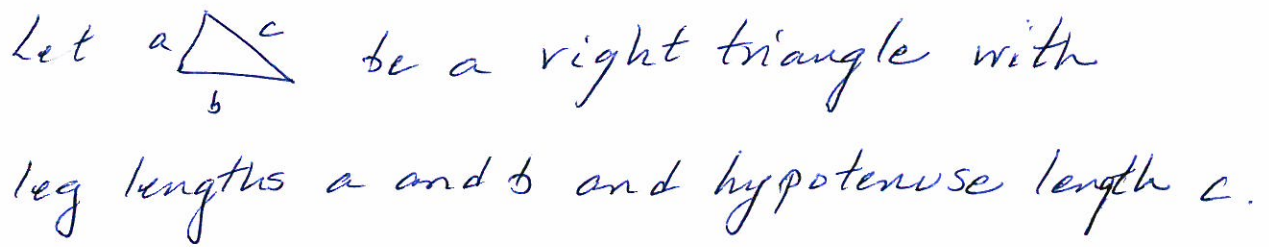 Let a c b be a right triangle with
leg lengths a and b and hypotenuse length c.